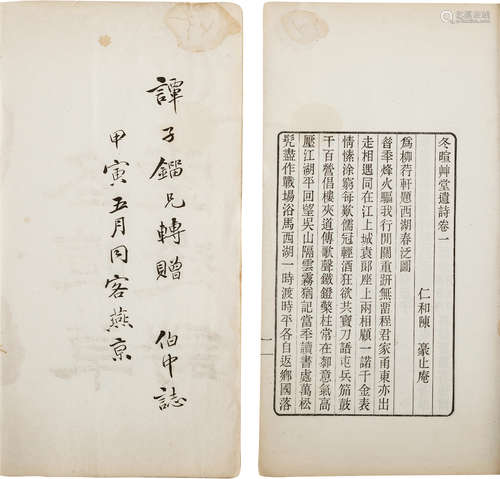 譚子鎦兄轉贈 伯中誌
甲寅五月同客燕京
冬暄艸堂遺詩卷一
仁和陳 豪止庵
爲柳荇軒題西湖春泛圖
昔季烽火驅我行間關重趼無曾程君家甬東亦出
走相遇同在江上城袁郎座上兩相顧一諾千金表
情愫涂窮每歎儒冠輕酒狂欲共寶刀語屯兵笳鼓
千百營倡樓夾道傳歌聲鐵鐙藥杜常在意氣高
壓江湖平回望吳山隔雲霧猶記當季讀書處萬松
髠盡作戰場浴馬西湖一時渡時平各自返鄉國落
一